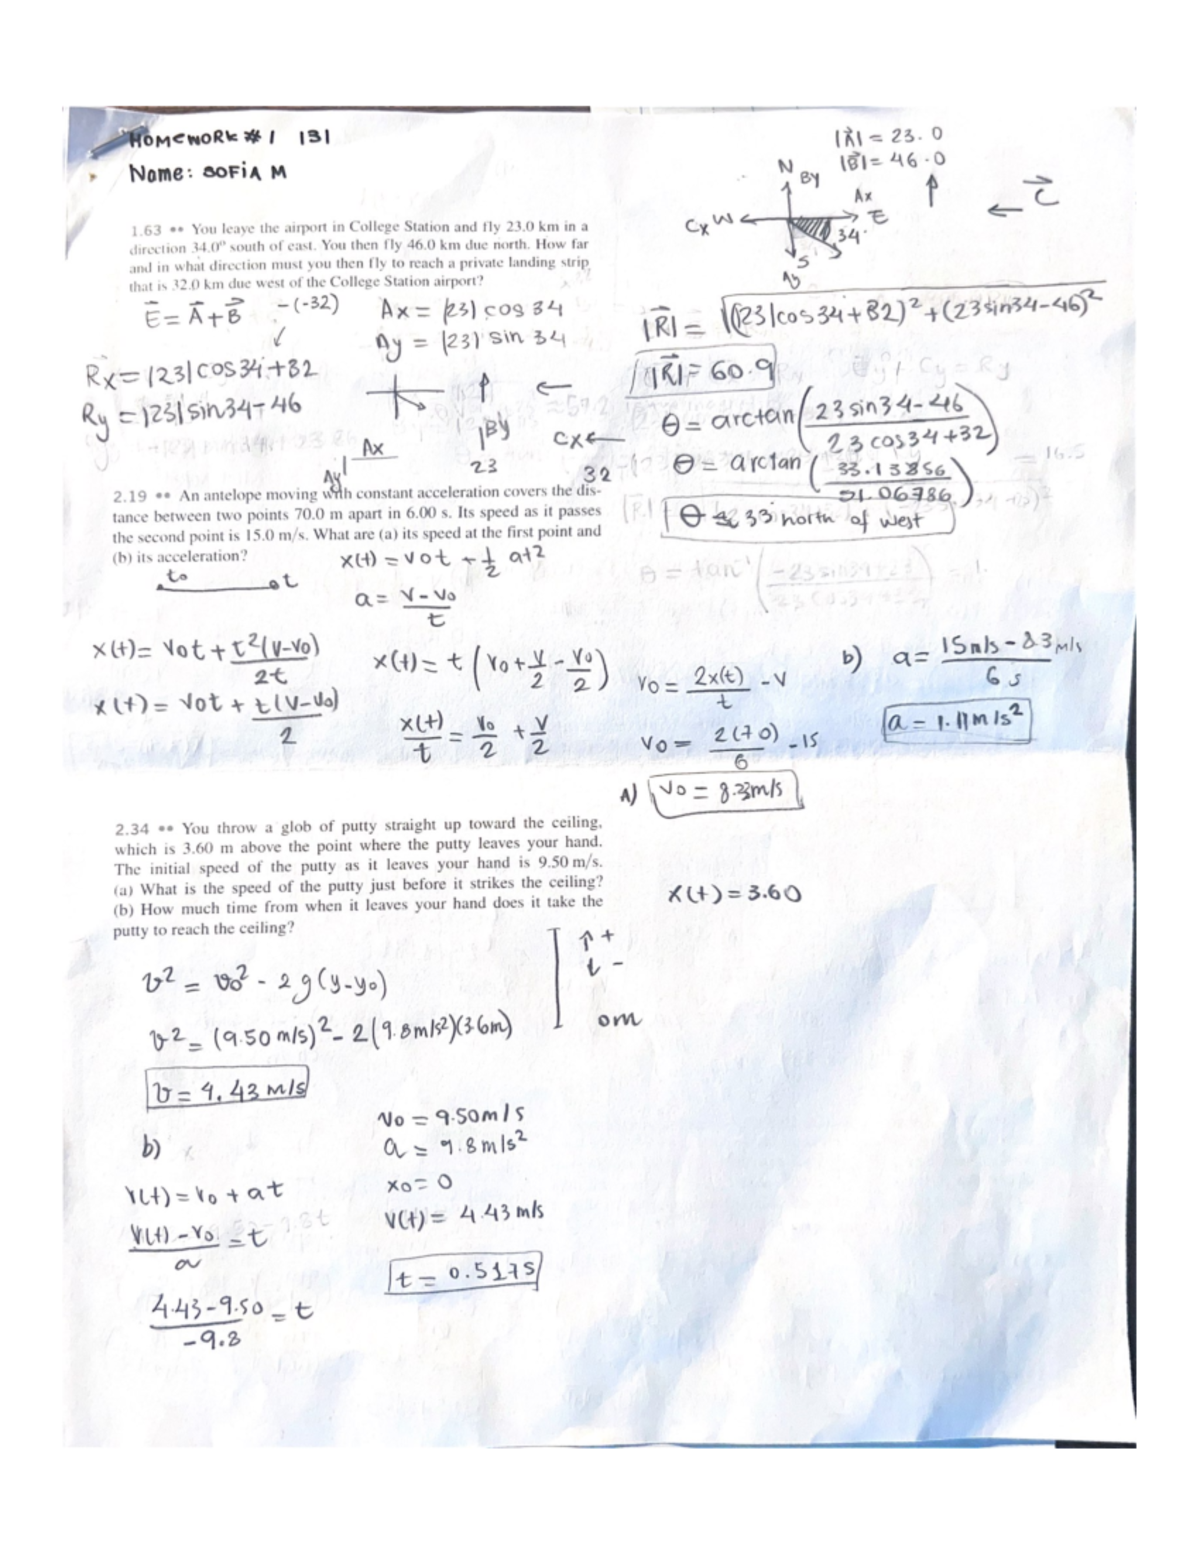 HOMEWORK #1 131
Name: SOFIA M
|A| = 23.0
|B| = 46.0
N
By
Ax
Cx W
E
34°
S
Ay
C
1.63 •• You leave the airport in College Station and fly 23.0 km in a
direction 34.0° south of east. You then fly 46.0 km due north. How far
and in what direction must you then fly to reach a private landing strip
that is 32.0 km due west of the College Station airport?
E = A + B -(-32)
Ax = |23| cos 34
Ay = |23| sin 34
Rx = |23| cos 34 + 32
Ry = |23| sin 34 - 46
Ax
Ay
|By
23
Cx
32
|R| = √(|23|cos34+32)² + (23sin34-46)²
|R| = 60.9
θ = arctan(23 sin34-46 / 23 cos34+32)
θ = arctan(33.13856 / 51.06786)
θ ≈ 33 north of west
2.19 •• An antelope moving with constant acceleration covers the dis-
tance between two points 70.0 m apart in 6.00 s. Its speed as it passes
the second point is 15.0 m/s. What are (a) its speed at the first point and
(b) its acceleration?
to t
x(t) = vot + 1/2 at2
a = v-vo / t
x(t) = vot + t²(v-vo) / 2t
x(t) = vot + t(v-vo) / 2
x(t) = t (vo + v/2 - vo/2)
x(t)/t = vo/2 + v/2
vo = 2x(t)/t - v
vo = 2(70)/6 - 15
A) vo = 8.33m/s
b) a = 15m/s - 8.3 m/s / 6 s
a = 1.11 m/s²
2.34 •• You throw a glob of putty straight up toward the ceiling,
which is 3.60 m above the point where the putty leaves your hand.
The initial speed of the putty as it leaves your hand is 9.50 m/s.
(a) What is the speed of the putty just before it strikes the ceiling?
(b) How much time from when it leaves your hand does it take the
putty to reach the ceiling?
x(t) = 3.60
↑ +
↓ -
0m
v² = vo² - 2g(y-yo)
v² = (9.50 m/s)² - 2(9.8m/s²)(3.6m)
v = 4.43 m/s
b)
v(t) = vo + at
v(t) - vo / a = t
4.43-9.50 / -9.8 = t
vo = 9.50m/s
a = 9.8 m/s²
xo = 0
v(t) = 4.43 m/s
t = 0.517s